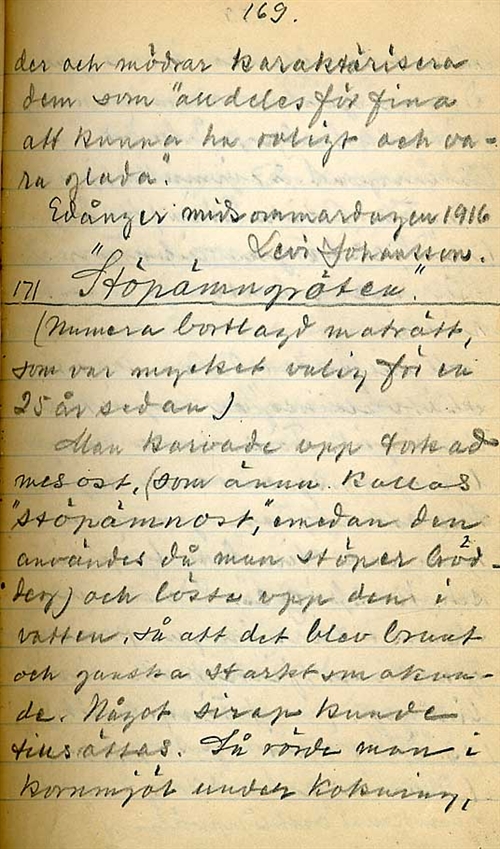 169.
der och mödrar karaktärisera
dem som "alldeles för fina
att kunna ha roligt och va-
ra glada."
Edånger midsommardagen 1916
Levi Johansson.
171 "Stöpämngröten".
(Numera bortlagd maträtt,
som var mycket vanlig för en
25 år sedan)
Man karvade upp torkad
mesost, (som ännu kallas
"stöpämnost," emedan den
användes då man stöper bröd-
deg) och löste upp den i
vatten, så att det blev brunt
och ganska starkt smakan-
de. Något sirap kunde
tillsättas. Så rörde man i
kornmjöl under kokning,